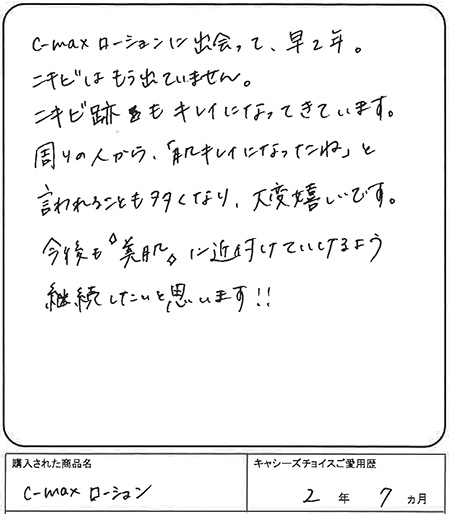 c-maxローションに出会って、早2年。
ニキビはもう出ていません。
ニキビ跡もキレイになってきています。
周りの人から、「肌キレイになったね」と
言われることも多くなり、大変嬉しいです。
今後も『美肌』に近付けていけるよう
継続したいと思います!!
購入された商品名
キャシーズチョイスご愛用歴
c-max ローション
2年 7ヵ月